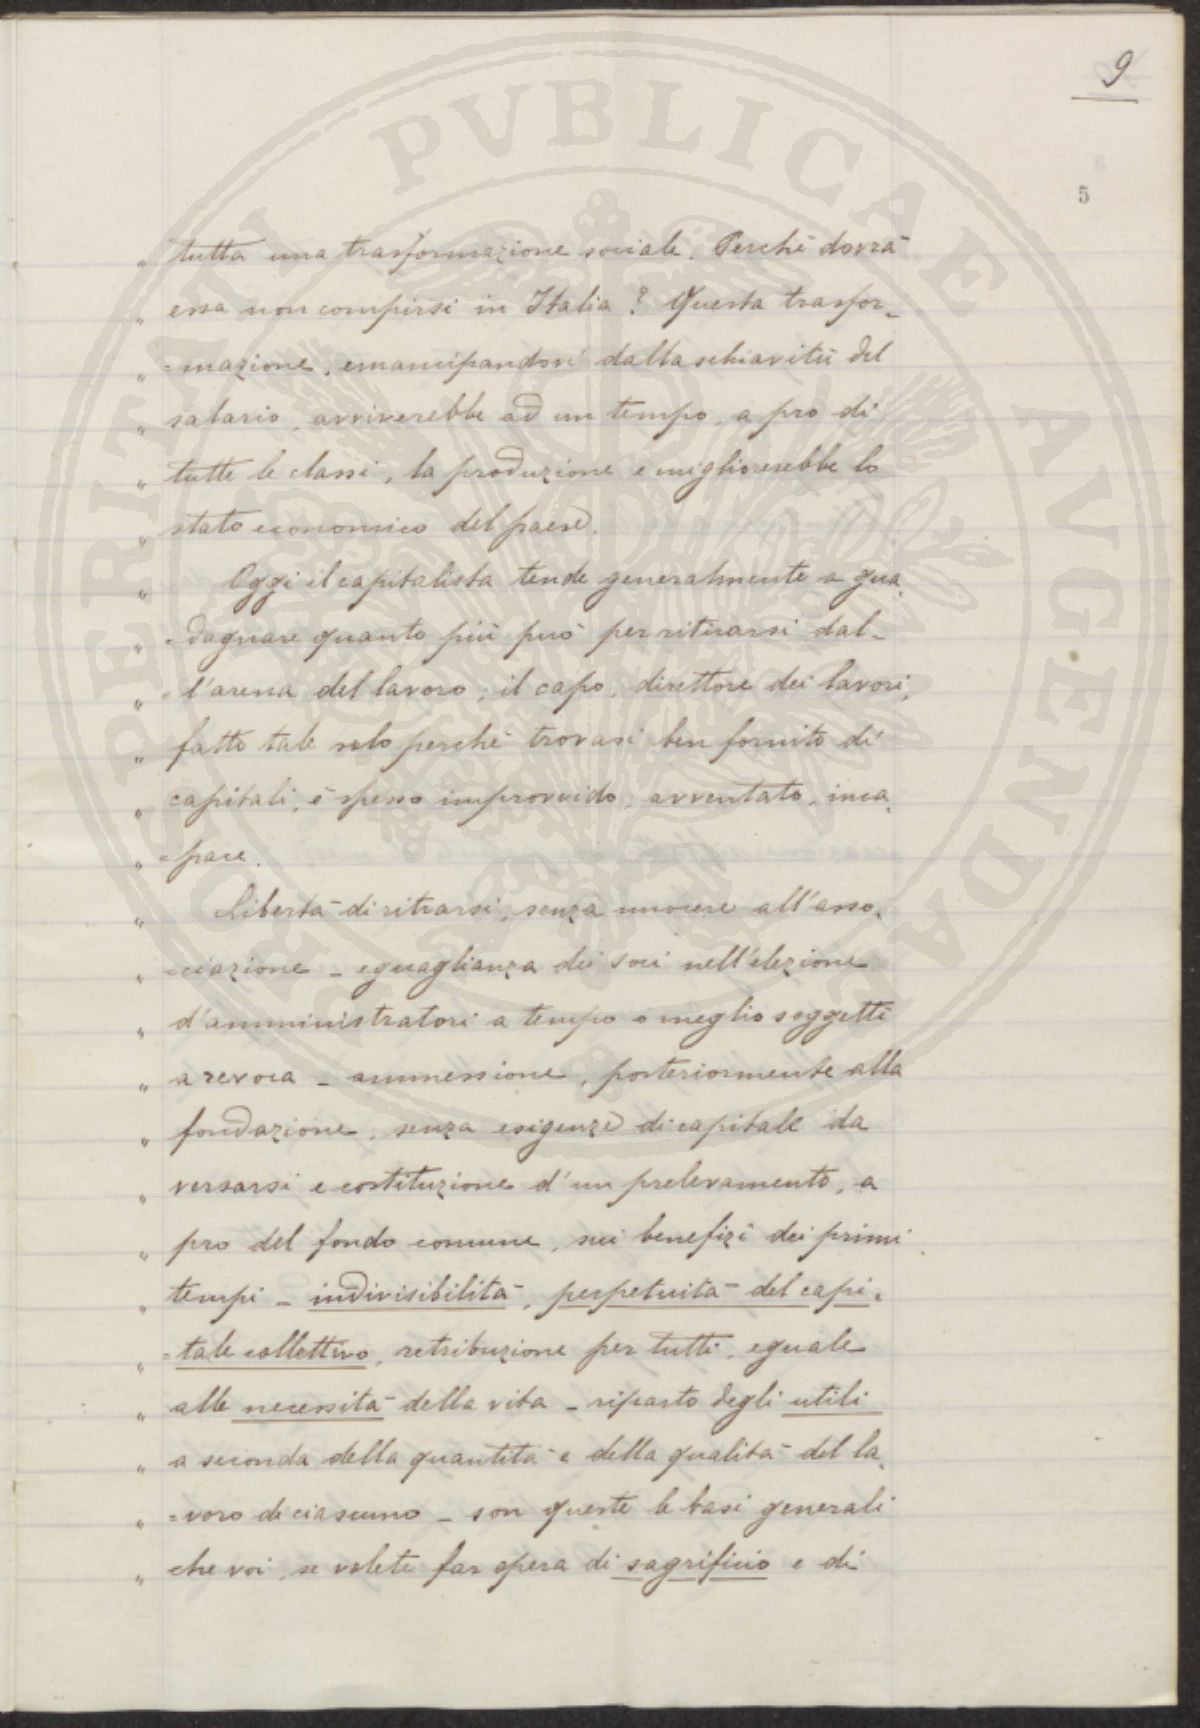 9
5
„ tutta una trasformazione sociale. Perchè dovrà
„ essa non compirsi in Italia? Questa trasfor-
„ =mazione, emancipandovi dalla schiavitù del
„ salario, avviverebbe ad un tempo, a pro di
„ tutte le classi, la produzione e migliorerebbe lo
„ stato economico del paese.
„ Oggi il capitalista tende generalmente a gua-
„ =dagnare quanto più può per ritirarsi dal-
„ =l'arena del lavoro; il capo, direttore dei lavori,
„ fatto tale solo perchè trovasi ben fornito di
„ capitali, è spesso improvvido, avventato, inca-
„ =pace.
„ Libertà di ritrarsi, senza nuocere all'asso-
„ =ciazione _ eguaglianza dei soci nell'elezione
„ d'amministratori a tempo o meglio soggetti
„ a revoca _ ammessione, posteriormente alla
„ fondazione, senza esigenze di capitale da
„ versarsi e costituzione d'un prelevamento, a
„ pro del fondo comune, sui benefizi dei primi
„ tempi _ indivisibilità, perpetuità del capi-
„ =tale collettivo, retribuzione per tutti, eguale
„ alle necessità della vita _ riparto degli utili
„ a seconda della quantità e della qualità del la-
„ =voro di ciascuno _ son queste le basi generali
„ che voi, se volete far opera di sagrificio e di
PROSPERITATI PVBLICAE AVGENDAE